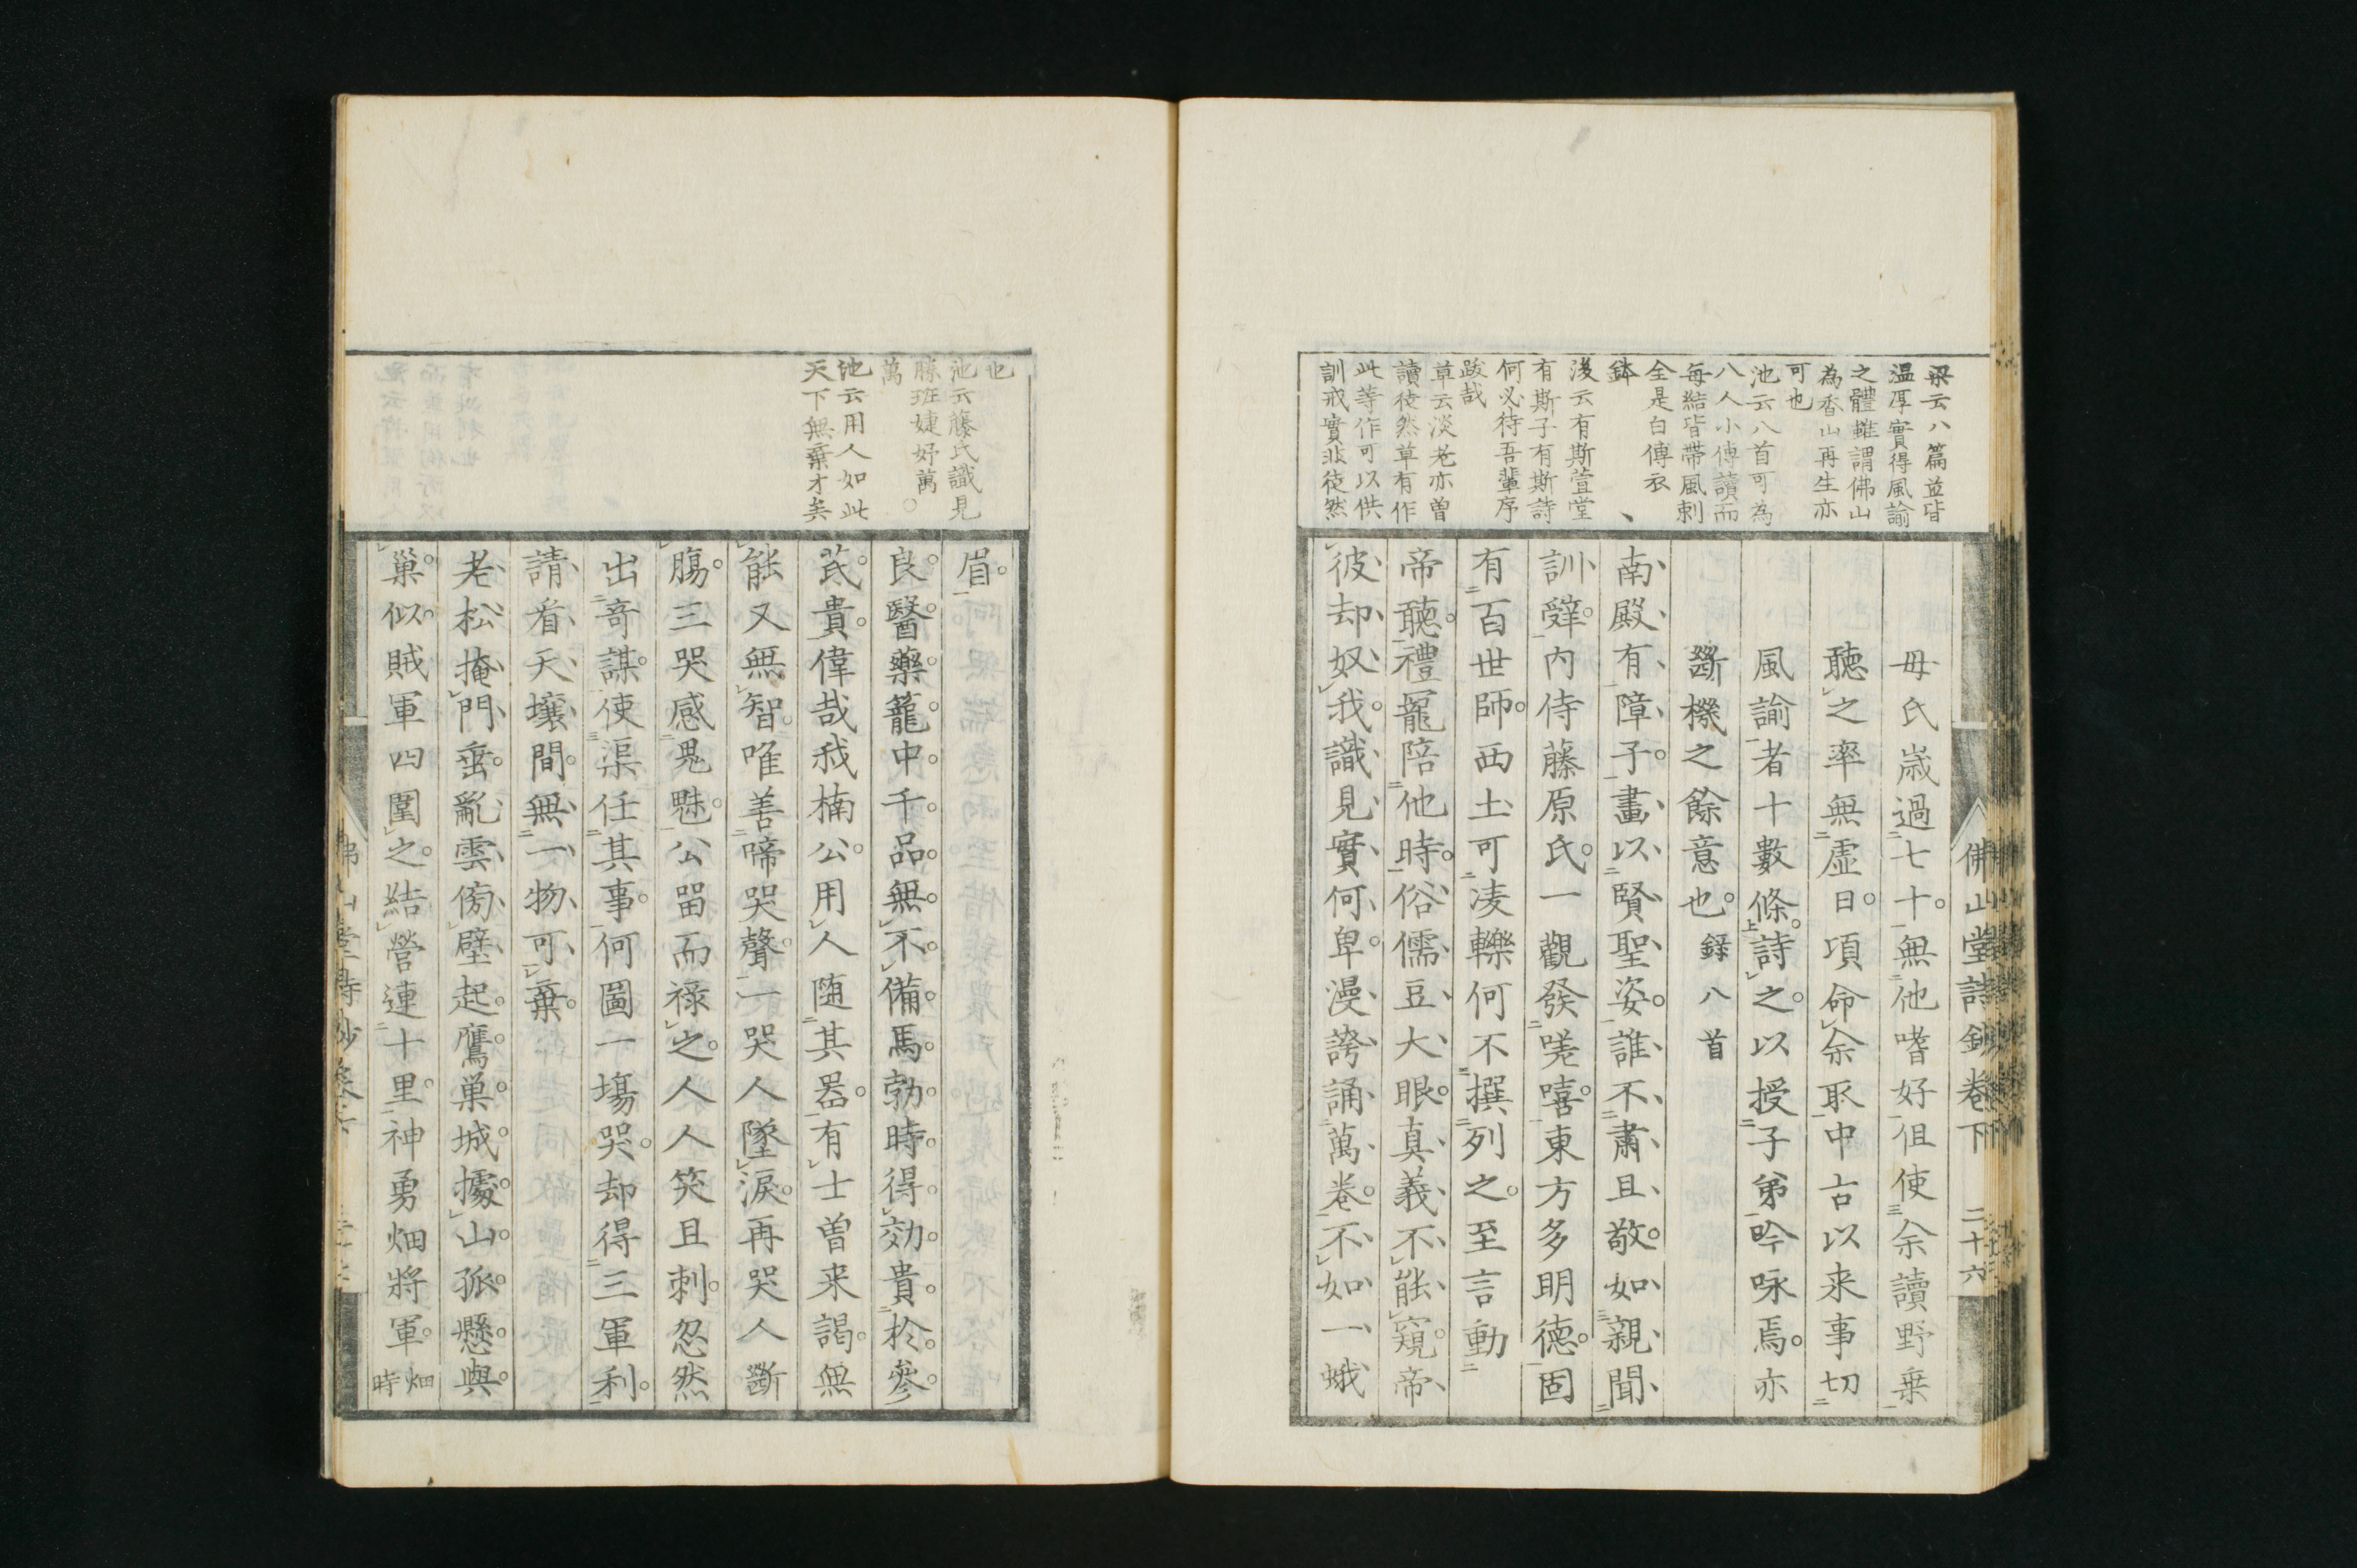 梁云八篇並皆
温厚實得風諭
之體雖謂佛山
為香山再生亦
可也
池云八首可為
八人小傳讀而
毎結皆帶風刺
全是白傅衣
鉢
後云有斯萱堂
有斯子有斯詩
何必待吾輩序
跋哉
草云淡老亦曽
讀徒然草有作
此等作可以供
訓戒實非徒然
佛山堂詩鈔卷下 二十六
毋氏嵗過七十無他嗜好但使余讀野乗
聽之率無虚日項命余取中古以来事切
風諭者十數條詩之以授子弟吟咏焉亦
斷機之餘意也録八首
南殿有障子畫以賢聖姿誰不肅且敬如親聞
訓辤内侍藤原氏一觀發嗟嘻東方多明德固
有百世師西土可凌轢何不撰列之至言動
帝聽禮寵陪他時俗儒豆大眼真義不能窺帝
彼却奴我識見實何卑漫誇誦萬卷不如一蛾
也
池云藤氏識見
勝班婕妤萬
萬
池云用人如此
天下無棄才矣
眉
良醫藥籠中千品無不備馬勃時得効貴於參
芪貴偉哉我楠公用人随其噐有士曽来謁無
能又無智唯善啼哭聲一哭人墜淚再哭人斷
腸三哭感鬼魅公畱而祿之人人笑且刺忽然
出奇謀使渠任其事何圖一塲哭却得三軍利
請看天壤間無一物可棄
老松掩門垂亂雲傍壁起鷹巣城據山孤懸與
巢似賊軍四圍之結營連十里神勇畑將軍畑時